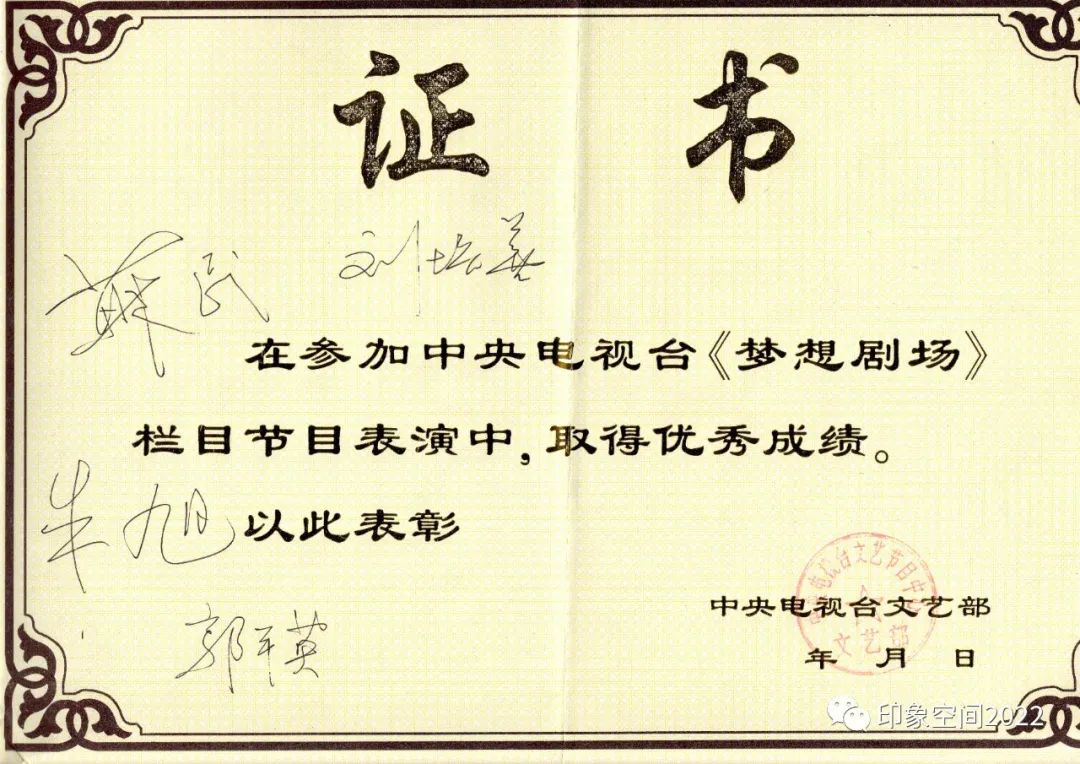 证书
苏民 刘培善
在参加中央电视台《梦想剧场》
栏目节目表演中，取得优秀成绩。
朱旭 以此表彰
中央电视台文艺部
年 月 日
电视台文艺节目中
文艺部
印象空间2022